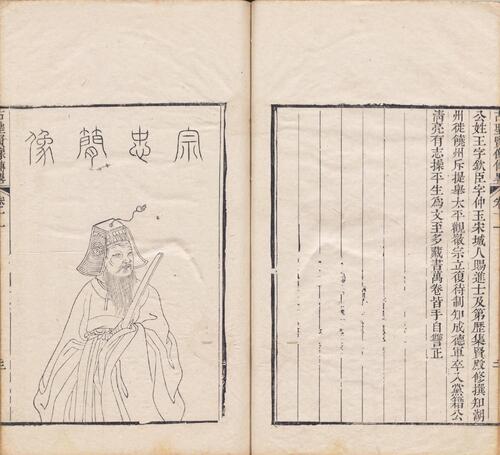 公姓王字欽臣字仲玉宋城人賜進士及第歷集賢殿修撰知湖
州徙饒州斥提舉太平觀徽宗立復待制知成德軍卒入黨籍公
清亮有志操平生爲文至多藏書萬卷皆手自讐正
宗忠簡像
古聖賢像傳畧 卷十一